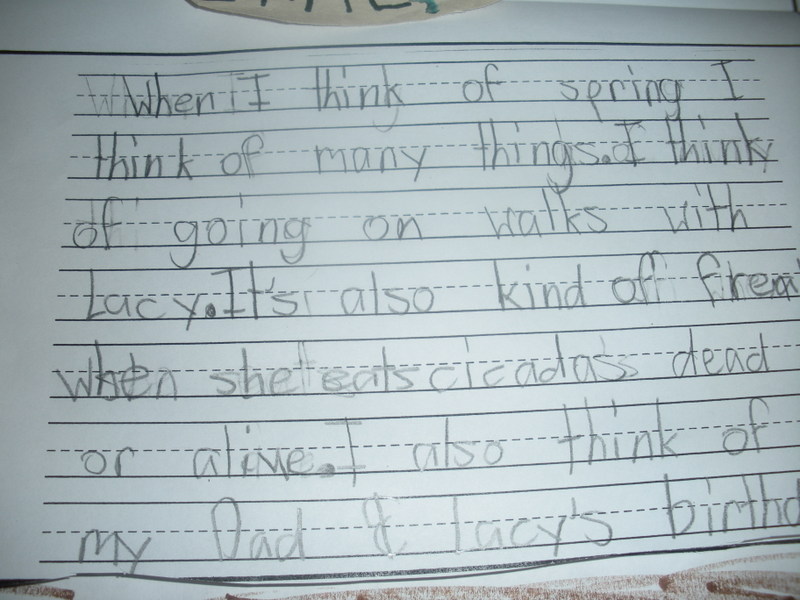 When I think of spring I
think of many things.I think
of going on walks with
Lacy.It's also kind off frea
when she eats cicadass dead
or alive.I also think of
my Dad & Lacy's birthd